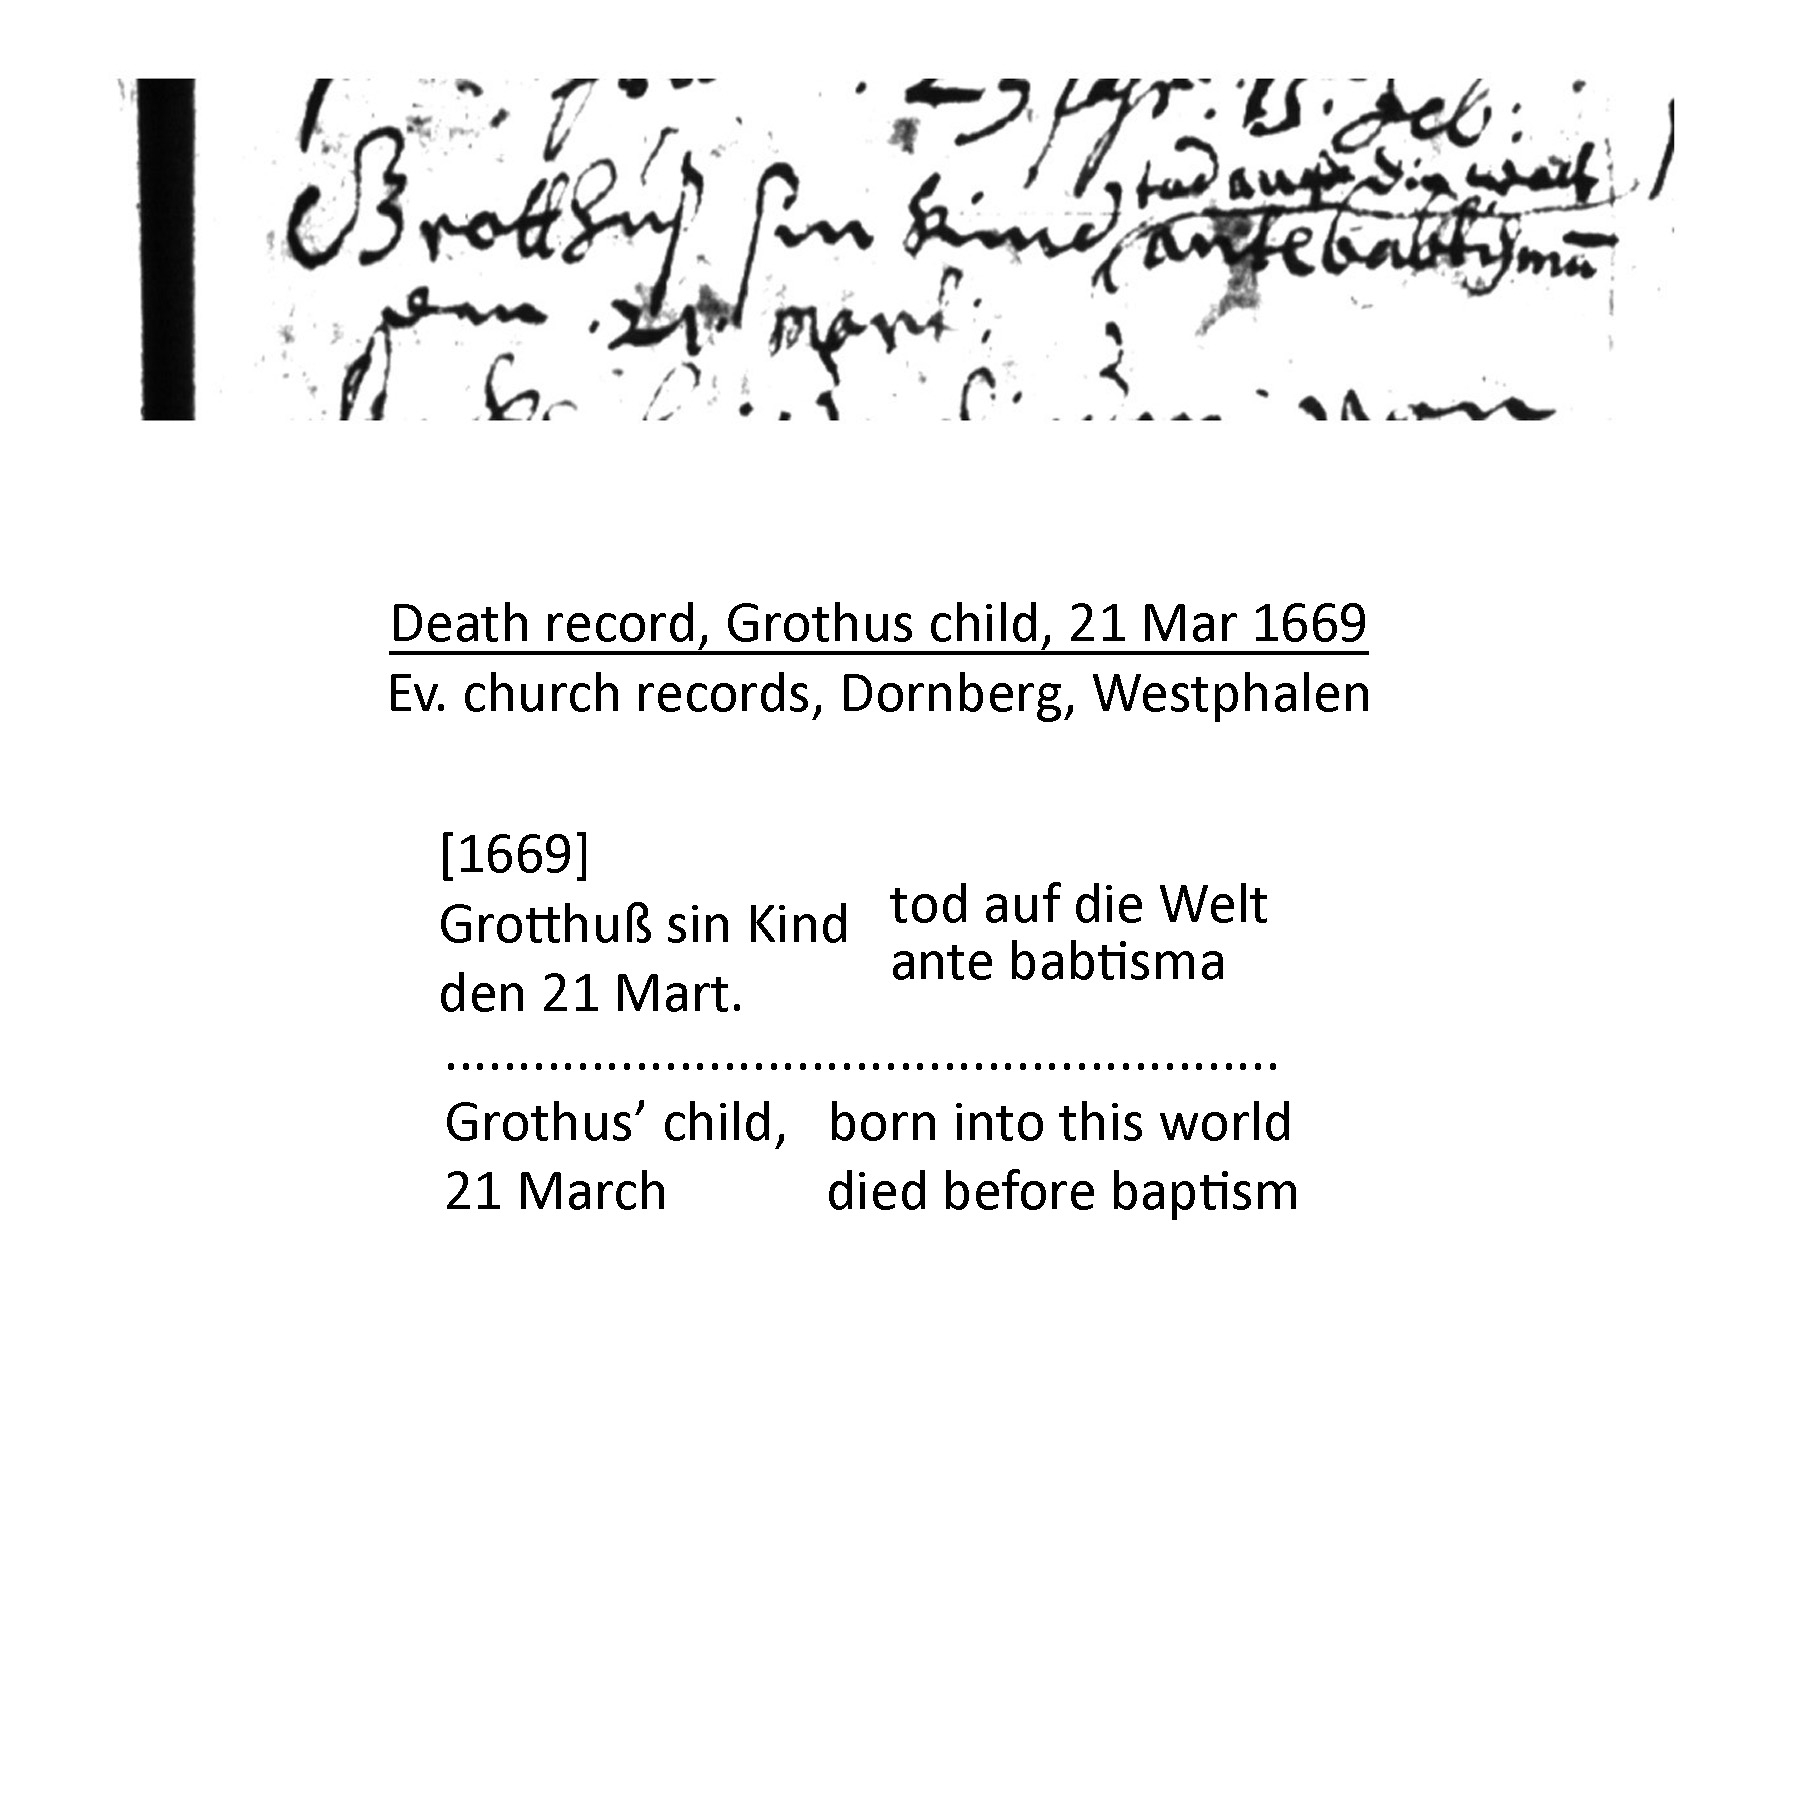 geb:
Grotthuß sin Kind
tod auf die welt
ante babtismū
den .21. Mart:
Death record, Grothus child, 21 Mar 1669
Ev. church records, Dornberg, Westphalen
[1669]
Grotthuß sin Kind
tod auf die Welt
ante babtisma
den 21 Mart.
Grothus’ child, born into this world
21 March died before baptism